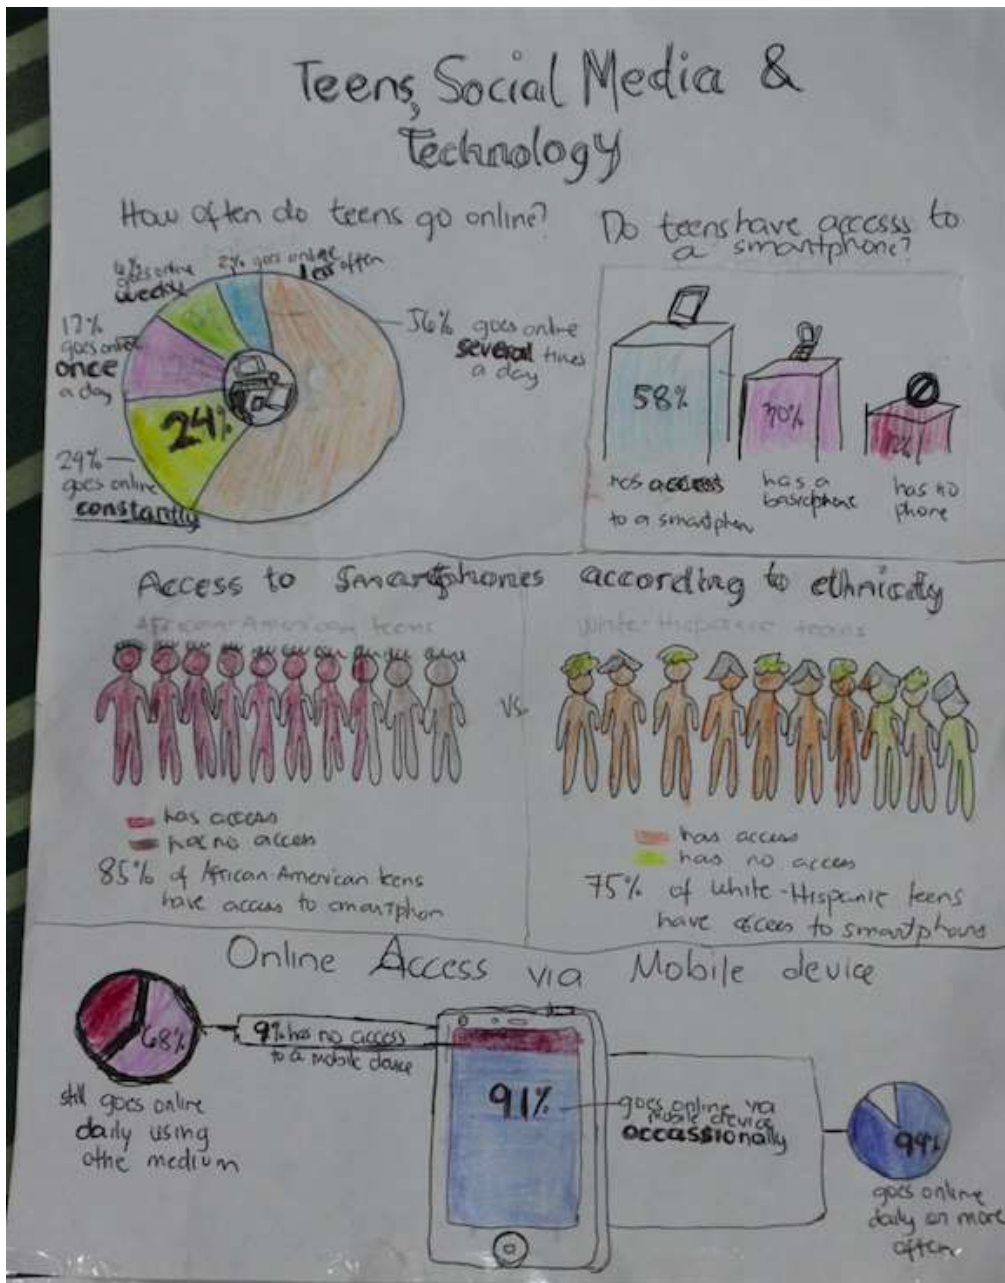 Teens, Social Media &
Technology
How often do teens go online?
6%
goes online
weekly
2% goes online
less often
56% goes online
several times
a day
12%
goes online
once
a day
24%
24%
goes online
constantly
Do teens have accesss to
a smartphone?
58%
30%
12%
has access
to a smartphon
has a
basicphone
has no
phone
Access to Smartphones according to ethnicity
African-American teens
vs.
White-Hispanic teens
has access
has no access
85% of African-American teens
have access to smartphon
has access
has no access
75% of white-Hispanic teens
have access to smartphons
Online Access via Mobile device
68%
still goes online
daily using
othe medium
9% has no access
to a mobile device
91%
goes online via
mobile device
occassionally
94%
goes online
daily or more
often